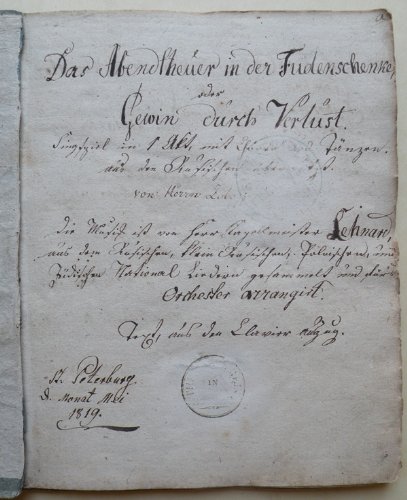 Das Abendtheuer in der Judenschenke,
oder
Gewin durch Verlust.
Singspiel in 1 Akt, mit Chören und Tänzen.
aus dem Rußischen
von Herrn
Die Musik ist von Herr Kapellmeister Lehnard,
aus dem Rußischen, klein Rußischen, Polnischen, und
Jüdischen National Liedern gesammelt und für's
Orchester arrangirt.
Text, aus den Clavier Auszug.
St. Peterburg
d. Monat Mei
1819.